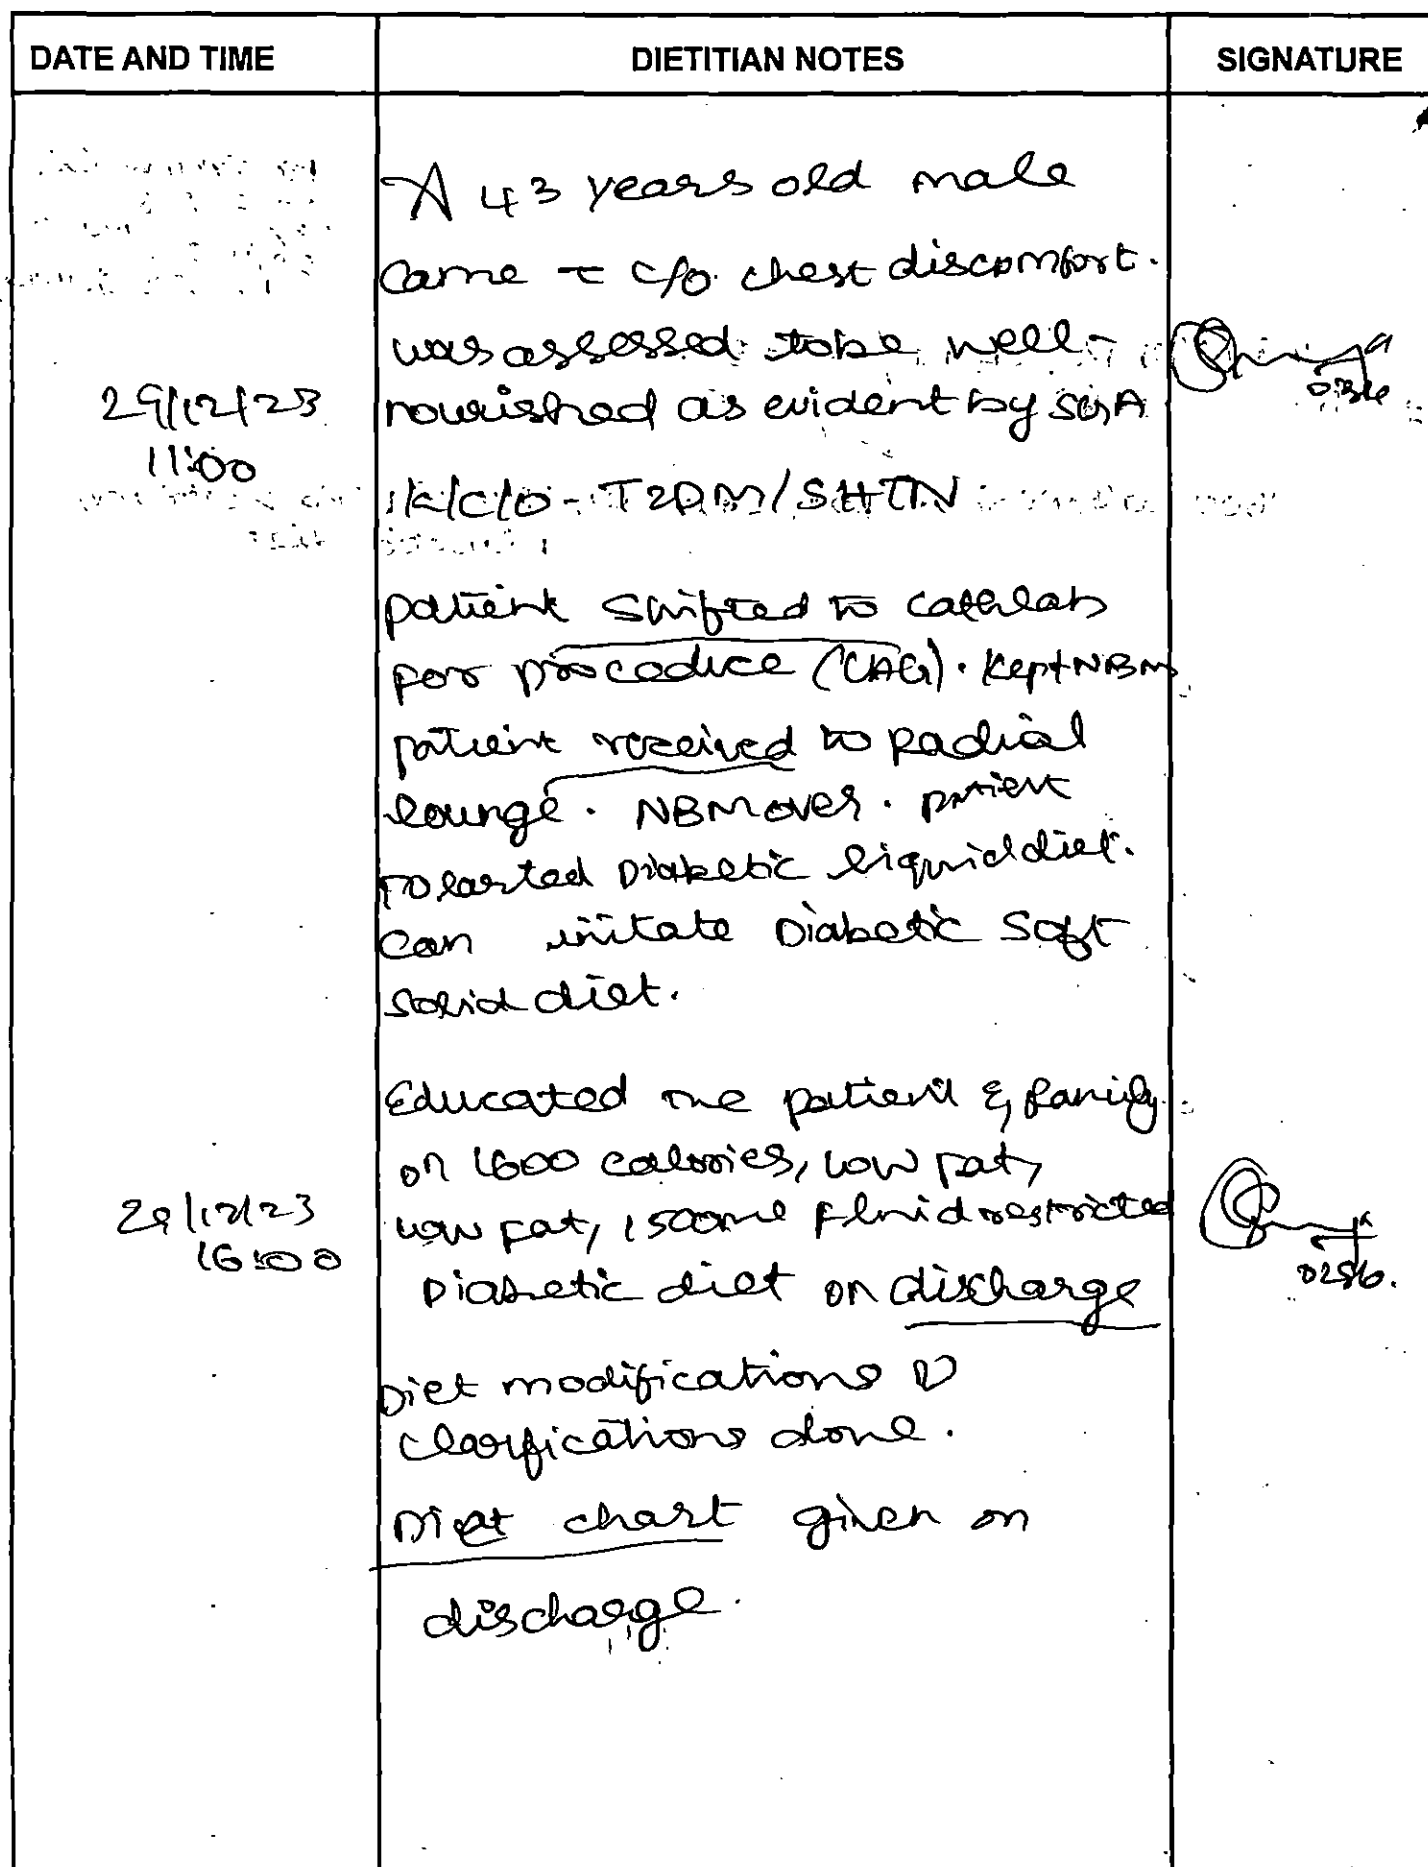 DATE AND TIME DIETITIAN NOTES SIGNATURE
A 43 years old male
came c̄ c/o chest discomfort.
was assessed to be well-
29/12/23 nourished as evident by SGA
11:00
K/C/O - T2DM/SHTN
patient shifted to cathlab
for procedure (CAG). Kept NBM
patient received to radial
lounge. NBM over. patient
tolearted Diabetic liquid diet.
can initate Diabetic soft
solid diet.
Educated the patient & family
on 1600 calories, low fat,
29/12/23 low fat, 1500ml fluid restricted
16:00 Diabetic diet on discharge
0256.
Diet modifications
clarfications done.
Diet chart given on
discharge.